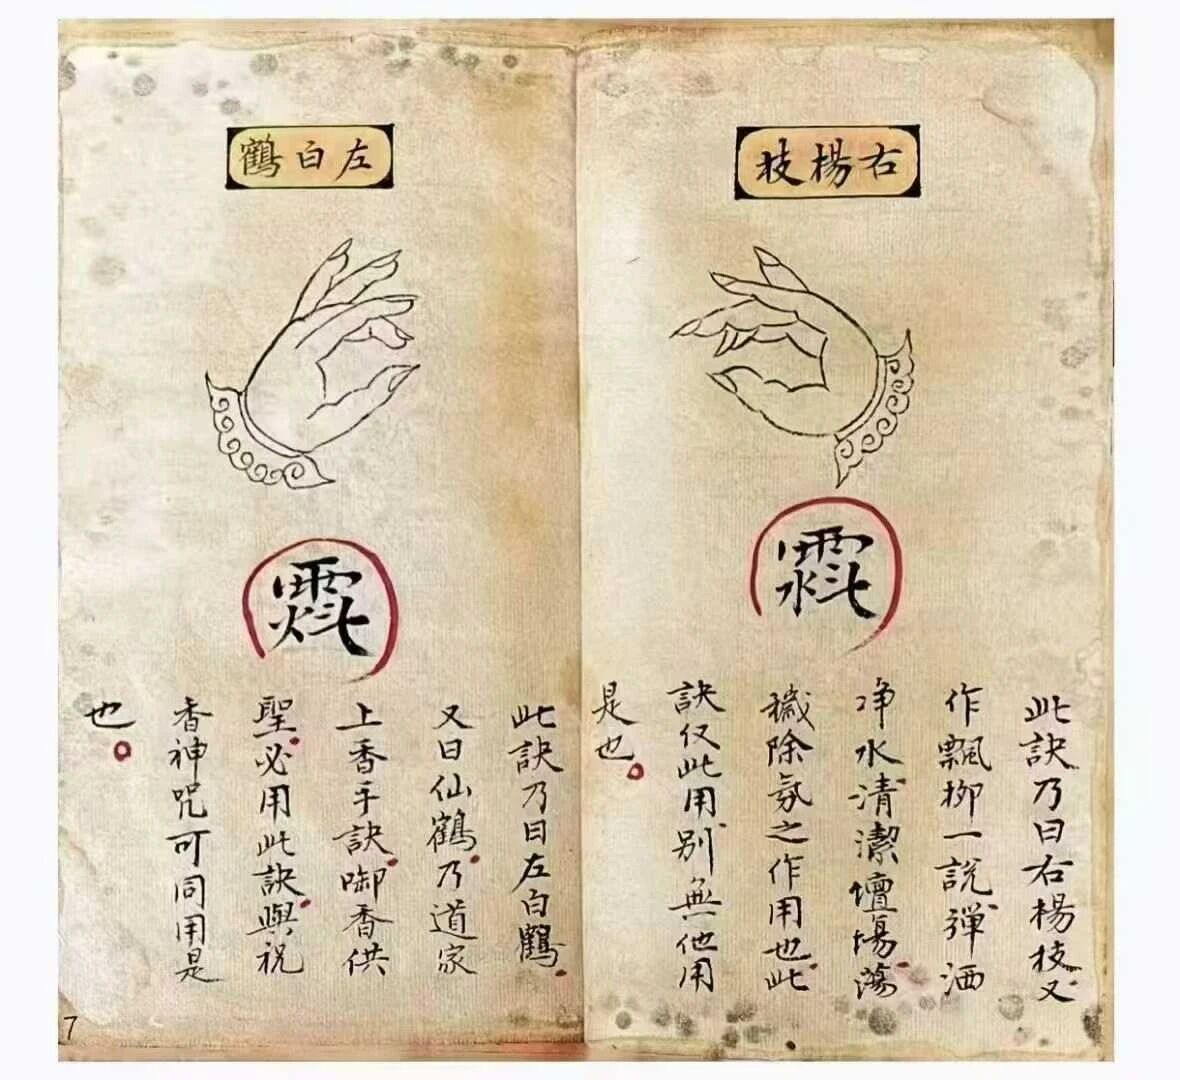 右楊枝
此訣乃曰右楊枝又
作飄柳一說彈洒
淨水清潔壇場蕩
穢除氛之作用也此
訣仅此用別無他用
是也。
左白鶴
此訣乃曰左白鶴
又曰仙鶴乃道家
上香手訣啣香供
聖必用此訣與祝
香神咒可同用是
也。
7